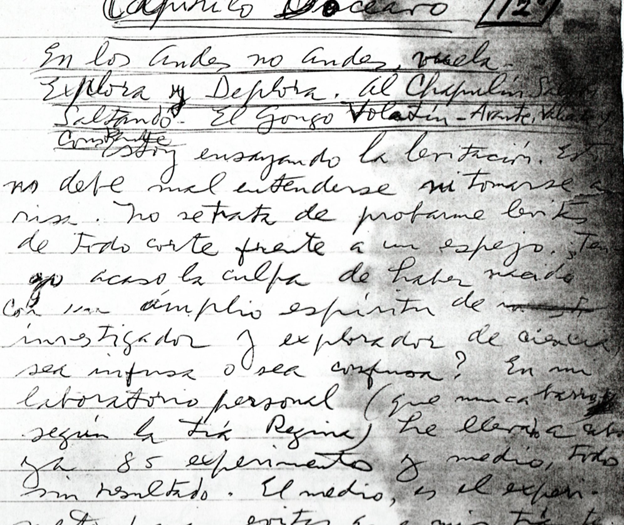 Capítulo Doceavo 12º
En los Andes no andes, vuela.
Explora y Deplora. Al Chapulín Salto
Saltando. El Gongo Volatín - Avante, Valiente y
Constante
Estoy ensayando la levitación. Es
no debe mal entenderse ni tomarse a
risa. No se trata de probarme levitas
de todo corte frente a un espejo. ¿Ten
go acaso la culpa de haber nacido
con un amplio espíritu de
investigador y explorador de ciencia
sea infusa o sea confusa? En mi
laboratorio personal (que nunca barro,
según la tía Regina) he llevado a cabo
ya 85 experimentos y medio, todo
sin resultado. El medio, es el experi-
evitar que mi tía